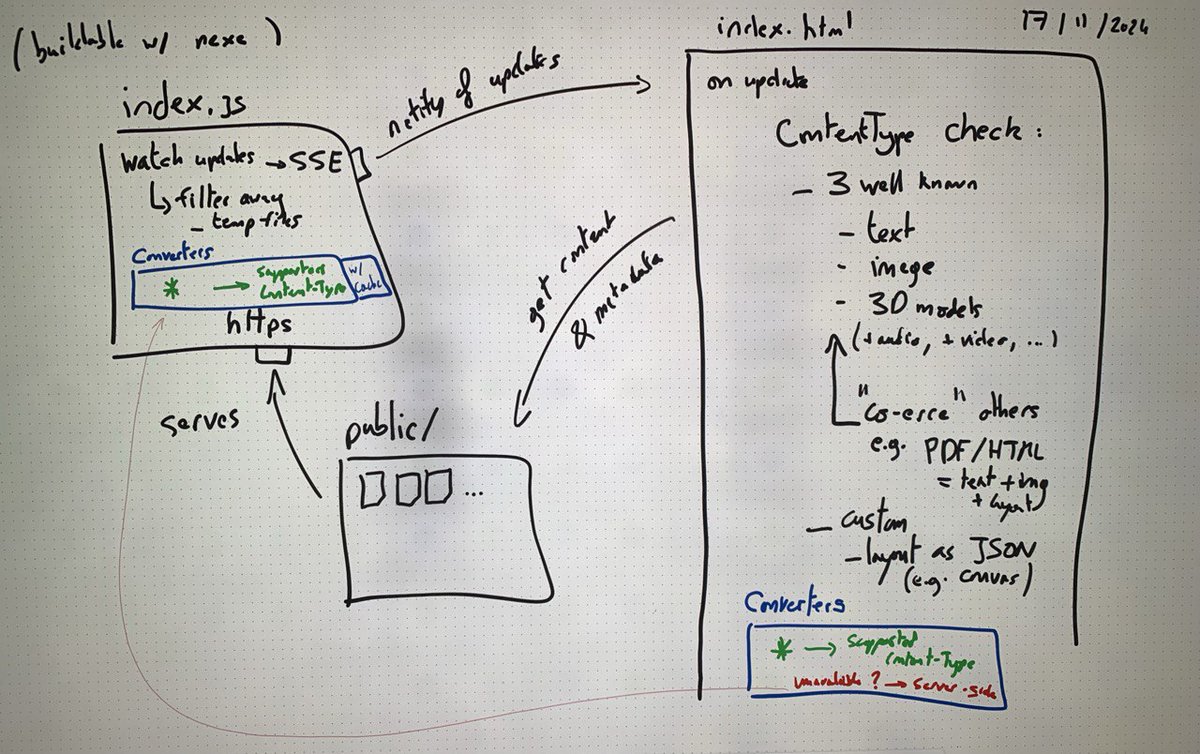 (buildable w/ nexe)
index.js
watch updates → SSE
↳ filter away
- temp files
Converters
* → supported
Content-Type
w/
cache
https
serves
public/
...
notify of updates
get content
& metadata
index.html
17/11/2024
on update
ContentType check:
- 3 well known
- text
- image
- 3D models
(+ audio, + video, ...)
"co-erce" others
e.g. PDF/HTML
= text + img
+ layout
- custom
- layout as JSON
(e.g. canvas)
Converters
* → supported
Content-Type
unavailable ? → server-side